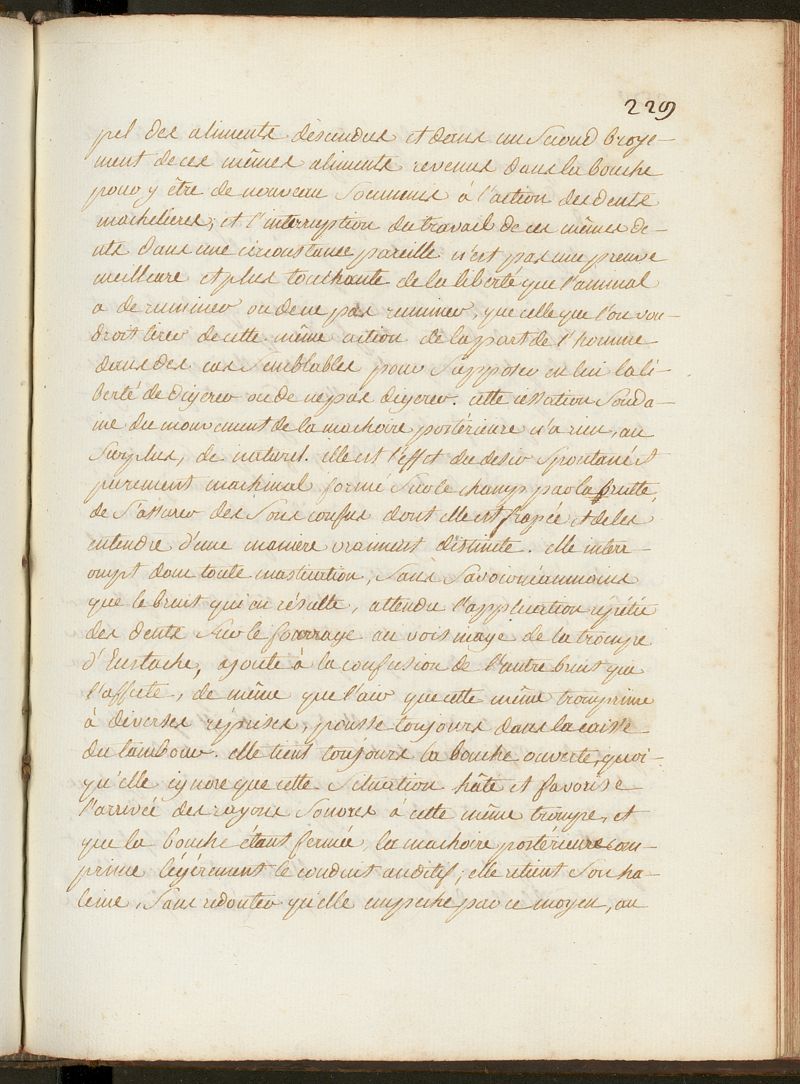 229
pel des aliments descendus et dans un second broye-
ment de ces mêmes aliments revenus dans la bouche
pour y être de nouveau soumens à l'action des dents
machelieres; et l'interruption du travail de ces mêmes de-
nts dans une circonstance pareille n'est pas une preuve
meilleure et plus touchante de la liberté que l'animal
a de ruminer ou de ne pas ruminer, que celle que l'on vou-
droit tirer de cette même action de la part de l'homme
dans des cas semblables pour supposer en lui la li-
berté de digerer ou de ne pas digerer. cette cessation souda-
ine du mouvement de la machoire postérieure n'a rien, au
surplus, de naturel. elle est l'effet du desir spontané et
purement machinal formé sur le champ par la brutte,
de s'assurer des sons confus dont elle est frapée et de les
entendre d'une maniere vraiment distincte. elle interr-
ompt donc toute mastication, sans savoir néanmoins
que le bruit qui en résulte, attendu l'application répétée
des dents sur le fourrage au voisinage de la trompe
d'Eustache, ajoute à la confusion de l'autre bruit qui
l'affecte, de même que l'air que cette même tromprime
à diverses reprises, pousse toujours dans la caisse
du tambour. elle tient toujours la bouche ouverte, quoi-
qu'elle ignore que cette situation hâte et favorise
l'arrivée des rayons sonores à cette même trompe, et
que la bouche étant fermée, la machoire postérieure com-
prime légérement le conduit auditif; elle retient son ha-
leine, sans redouter qu'elle empeche par ce moyen, au